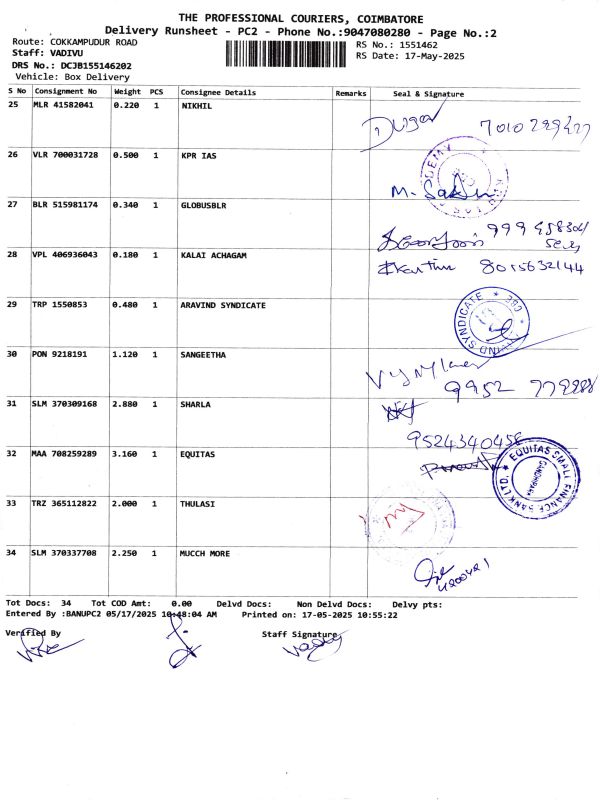 THE PROFESSIONAL COURIERS, COIMBATORE
Delivery Runsheet - PC2 - Phone No.:9047080280 - Page No.:2
Route: COKKAMPUDUR ROAD
Staff: VADIVU
DRS No.: DCJB155146202
Vehicle: Box Delivery
RS No.: 1551462
RS Date: 17-May-2025
S No Consignment No Weight PCS Consignee Details Remarks Seal & Signature
25 MLR 41582041 0.220 1 NIKHIL
26 VLR 700031728 0.500 1 KPR IAS
27 BLR 515981174 0.340 1 GLOBUSBLR
28 VPL 406936043 0.180 1 KALAI ACHAGAM
8015632144
29 TRP 1550853 0.480 1 ARAVIND SYNDICATE
30 PON 9218191 1.120 1 SANGEETHA
31 SLM 370309168 2.880 1 SHARLA
9524340458
32 MAA 708259289 3.160 1 EQUITAS
EQUITAS SMALL FINANCE BANK LTD.
33 TRZ 365112822 2.000 1 THULASI
34 SLM 370337708 2.250 1 MUCCH MORE
Tot Docs: 34 Tot COD Amt: 0.00 Delvd Docs: Non Delvd Docs: Delvy pts:
Entered By :BANUPC2 05/17/2025 10:48:04 AM Printed on: 17-05-2025 10:55:22
Verified By Staff Signature